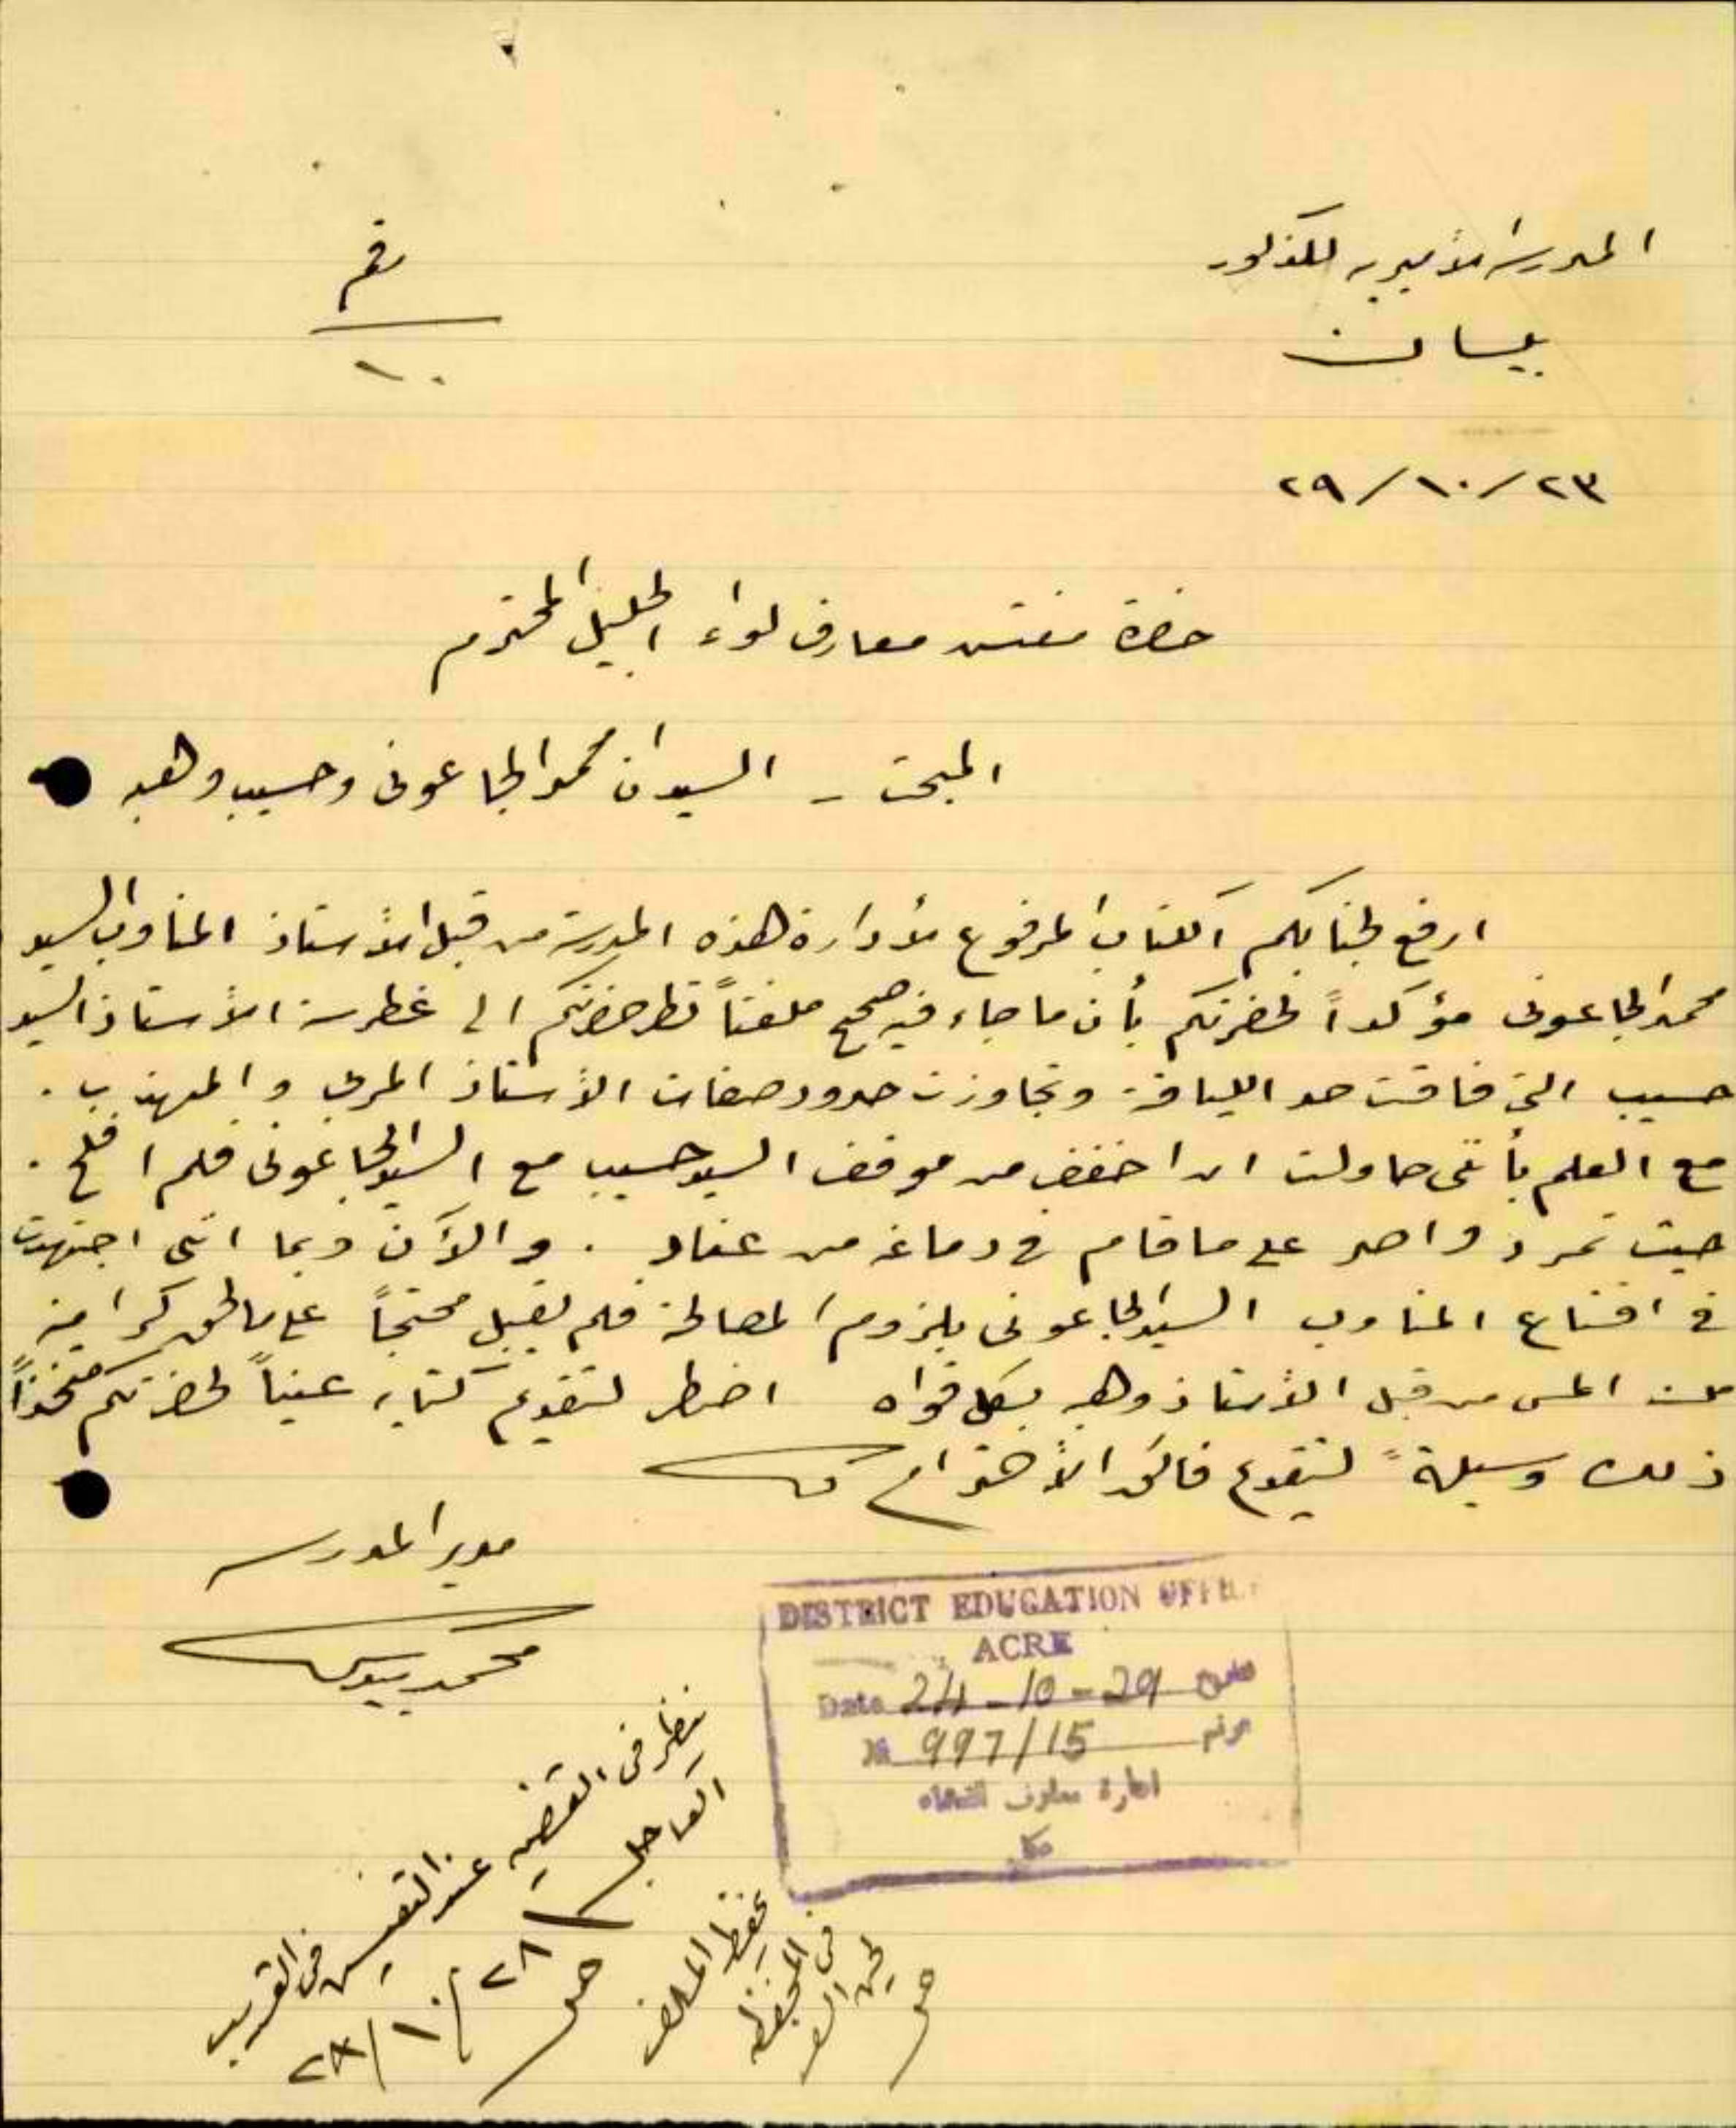 المدرسة الأميرية للذكور
بيسان
رقم
١٠
٢٩/١٠/٢٣
حضرة مفتش معارف لواء الجليل المحترم
المبحث - السيدان محمد الجاعوني وحسيب وهبه
ارفع لجنابكم الكتاب المرفوع لأدارة هذه المدرسة من قبل الأستاذ المناوب السيد
محمد الجاعوني مؤكداً لحضرتكم بأن ما جاء فيه صحيح ملفتاً نظر حضرتكم الى غطرسة الأستاذ السيد
حسيب التي فاقت حد اللياقة وتجاوزت حدود صفات الأستاذ المربي والمهذب .
مع العلم بأنني حاولت ان اخفف من موقف السيد حسيب مع السيد الجاعوني فلم افلح .
حيث تمرد واصر على ما قام في دماغه من عناد . والآن وبما انني اجتهدت
في اقناع المناوب السيد الجاعوني بلزوم المصالحة فلم يقبل محتجاً على ما لحق كرامته
من المس من قبل الأستاذ وهبه بكل قواه اضطر لتقديم كتابه عيناً لحضرتكم متخذاً
ذلك وسيلة لتقديم فائق الأحترام
مدير المدرسة
محمد
DISTRICT EDUCATION OFFICE
ACRE
Date 24-10-29 تاريخ
№ 997/15 نمرة
ادارة معارف القضاء
عكا
ينظر في القضيه عند التفتيش في القريب
العاجل
٢٨/١٠/٢٨
يحفظ الملف
في المحفظه